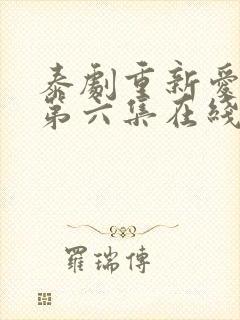 泰劇重新愛
第六集在綫
羅瑞傳